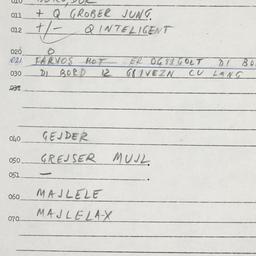 011 + Q GROBER JUNG.
012 +/- Q INTELIGENT
020 0
021 FARVOS HOT ER OGEGOLT DI BO
030 DI BORD IZ GEVEZN CU LANG
031
040 GEJDER
050 GREJSER MUJL
051 —
060 MAJLELE
070 MAJLELAX